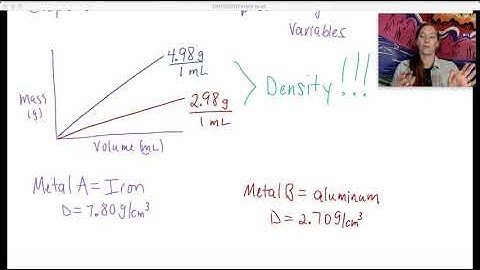 Variables
4.98g
1 mL
mass
(g)
2.98g
1 mL
Density!!!
Volume (mL)
Metal A = Iron
D = 7.80g/cm³
Metal B = aluminum
D = 2.70g/cm³